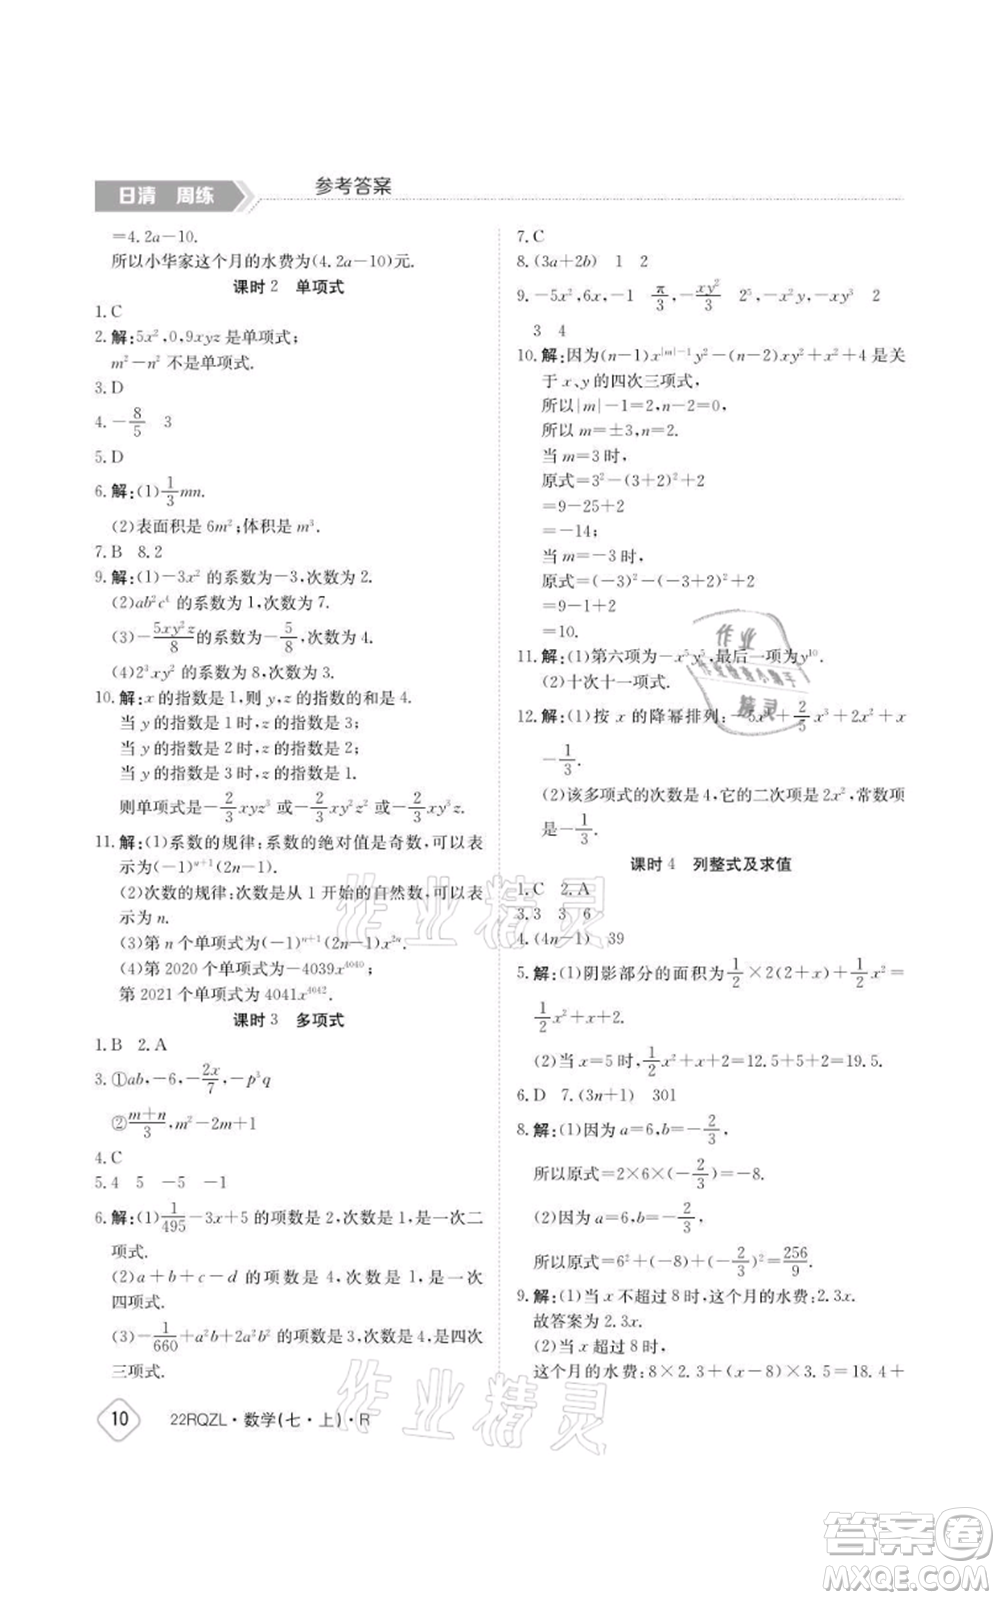 日清 周练
参考答案
=4.2a-10.
所以小华家这个月的水费为(4.2a-10)元.
课时2 单项式
1.C
2.解:5x²,0,9xyz是单项式;
m²-n²不是单项式.
3.D
4.-8/5 3
5.D
6.解:(1)1/3mn.
(2)表面积是6m²;体积是m³.
7.B 8.2
9.解:(1)-3x²的系数为-3,次数为2.
(2)ab²c⁴的系数为1,次数为7.
(3)-5xy²z/8的系数为-5/8,次数为4.
(4)2³xy²的系数为8,次数为3.
10.解:x的指数是1,则y,z的指数的和是4.
当y的指数是1时,z的指数是3;
当y的指数是2时,z的指数是2;
当y的指数是3时,z的指数是1.
则单项式是-2/3xyz³或-2/3xy²z²或-2/3xy³z.
11.解:(1)系数的规律:系数的绝对值是奇数,可表
示为(-1)ⁿ⁺¹(2n-1).
(2)次数的规律:次数是从1开始的自然数,可以
表示为n.
(3)第n个单项式为(-1)ⁿ⁺¹(2n-1)x²ⁿ.
(4)第2020个单项式为-4039x⁴⁰⁴⁰;
第2021个单项式为4041x⁴⁰⁴².
课时3 多项式
1.B 2.A
3.①ab,-6,-2x/7,-p³q
②(m+n)/3,m²-2m+1
4.C
5.4 5 -5 -1
6.解:(1)1/495-3x+5的项数是2,次数是1,是一次二
项式.
(2)a+b+c-d的项数是4,次数是1,是一次
四项式.
(3)-1/660+a²b+2a²b²的项数是3,次数是4,是四次
三项式.
10
22RQZL·数学(七·上)·R
7.C
8.(3a+2b) 1 2
9.-5x²,6x,-1 π/3,-xy²/3 2⁵,-x²y,-x³ 2
3 4
10.解:因为(n-1)x^(|m|-1)y²-(n-2)xy²+x²+4是关
于x、y的四次三项式,
所以|m|-1=2,n-2=0,
所以m=±3,n=2.
当m=3时,
原式=3²-(3+2)²+2
=9-25+2
=-14;
当m=-3时,
原式=(-3)²-(-3+2)²+2
=9-1+2
=10.
11.解:(1)第六项为-x⁵y⁵,最后一项为y¹⁰.
(2)十次十一项式.
12.解:(1)按x的降幂排列:-5x⁴+2/5x³+2x²+x
-1/3.
(2)该多项式的次数是4,它的二次项是2x²,常数项
是-1/3.
课时4 列整式及求值
1.C 2.A
3.3 3 6
4.(4n-1) 39
5.解:(1)阴影部分的面积为1/2×2(2+x)+1/2x²=
1/2x²+x+2.
(2)当x=5时,1/2x²+x+2=12.5+5+2=19.5.
6.D 7.(3n+1) 301
8.解:(1)因为a=6,b=-2/3,
所以原式=2×6×(-2/3)=-8.
(2)因为a=6,b=-2/3,
所以原式=6²+(-8)+(-2/3)²=256/9.
9.解:(1)当x不超过8时,这个月的水费:2.3x.
故答案为2.3x.
(2)当x超过8时,
这个月的水费:8×2.3+(x-8)×3.5=18.4+
作业精灵
作业精灵
作业
作业检查小助手
精灵
答案卷
MXQE.COM